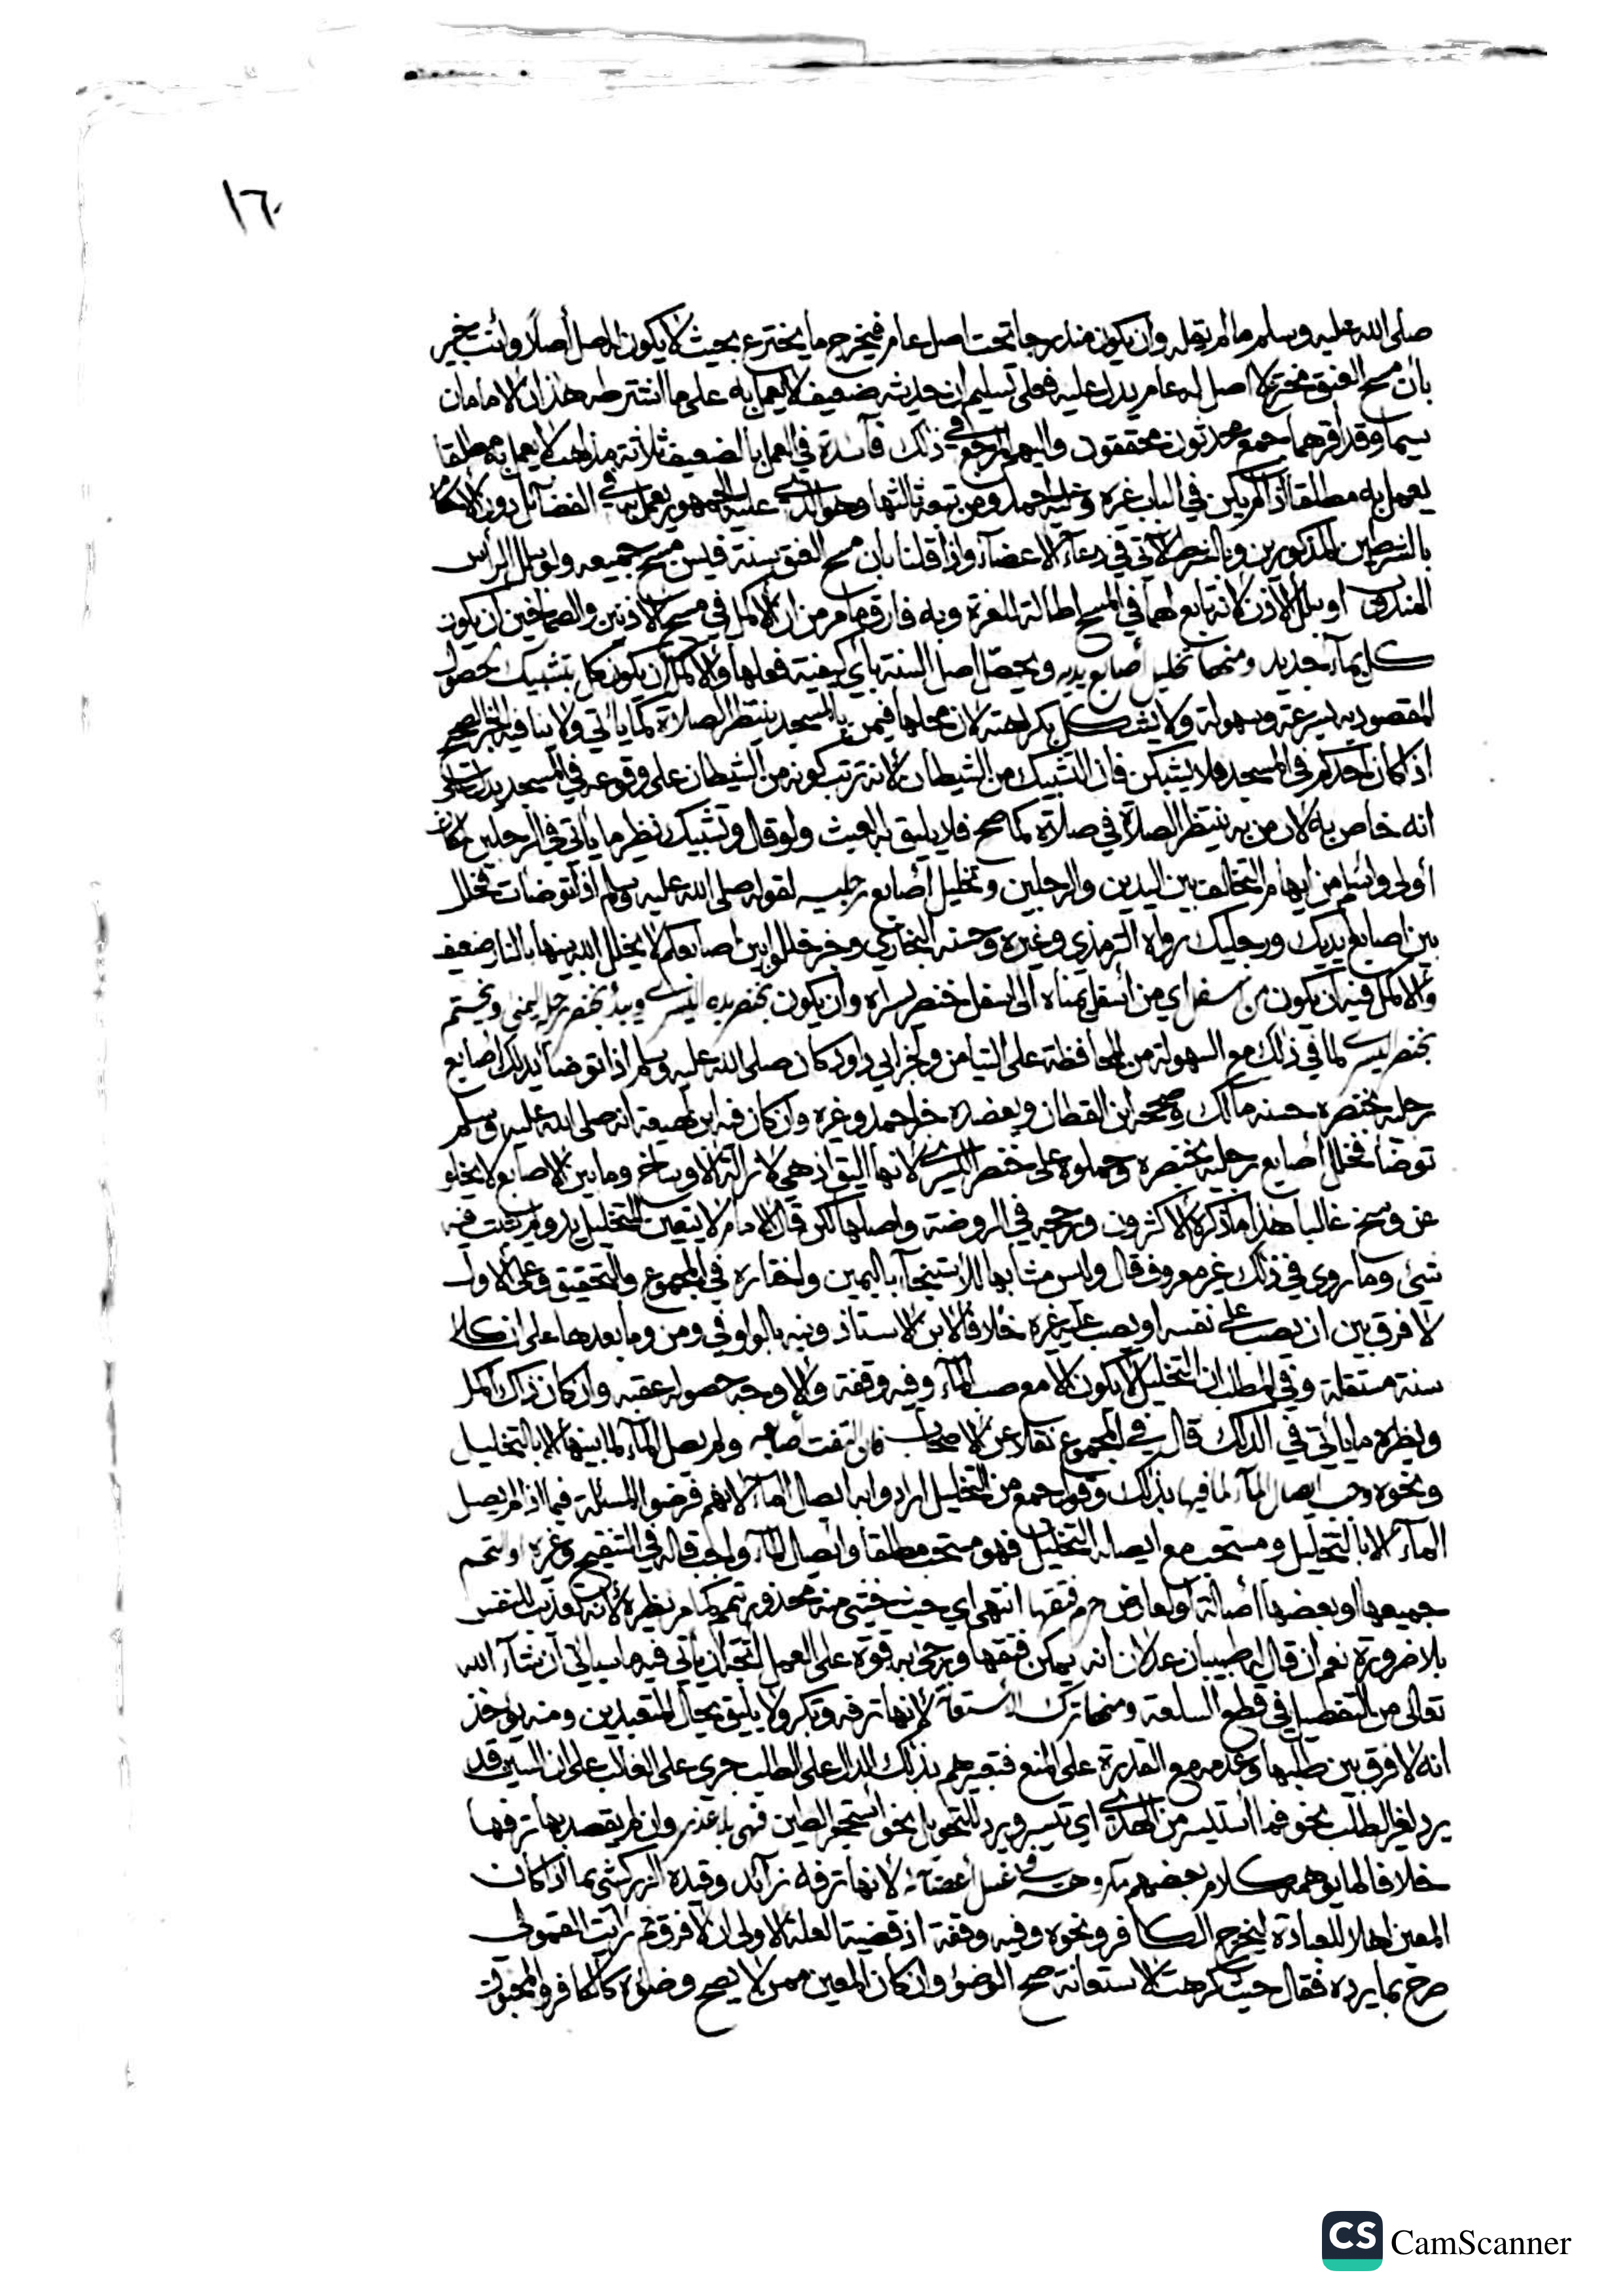 ١٦٠
صلى الله عليه وسلم ما لم يقله وان يكون مندرجا تحت اصل عام فيخرج ما يخترع بحيث لا يكون له اصل أصلا وأنت خبير
بأن مسح العنق مخترع لا اصل له عام يدل عليه فعلى تسليم ان حديثه ضعيف لا يعمل به على ما اشترطه هذان الامامان
سيما وقد أقرهما جمع محدثون محققون واليهم المرجع في ذلك فآئدة في العمل بالضعيف ثلاثة مذاهب لا يعمل به مطلقا
يعمل به مطلقا اذا لم يكن في الباب غيره وعليه احمد ومن تبعه ثالثها وهو الذي عليه الجمهور يعمل به في الفضآئل دون الاحكام
بالشرطين المذكورين وبالشرط الآتي في دعآء الاعضآء واذا قلنا بأن مسح العنق سنة فيسن مسح جميعه ولو ببلل الرأس
المندوب او بلل الاذن لانه تابع لهما في المسح اطالة للغرة وبه فارق ما مر من ان الاكمل في مسح الاذنين والصماخين ان يكون
كل بمآء جديد ومنها تخليل أصابع يديه ويحصل اصل السنة بأي كيفية فعلها والاكمل ان يكون بتشبيك لحصول
المقصود به بسرعة وسهولة ولا يشكل بكراهته لان محلها فيمن بالمسجد ينتظر الصلاة كما يأتي ولا ينافيه الخبر الصحيح
اذا كان احدكم في المسجد فلا يشبكن فان التشبيك من الشيطان لانه ترتب كونه من الشيطان على وقوعه في المسجد يدل على
انه خاص به لان من به ينتظر الصلاة في صلاة كما صح فلا يليق به العبث ولو قال وتشبيك نظير ما يأتي في الرجلين لكان
أولى وأسلم من ايهام التخالف بين اليدين والرجلين وتخليل أصابع رجليه لقوله صلى الله عليه وسلم اذا توضأت فخلل
بين اصابع يديك ورجليك رواه الترمذي وغيره وحسنه البخاري وخبر خللوا بين اصابعكم لا يخلل الله بينها بالنار ضعيف
والاكمل فيه ان يكون من سفل اي من أسفل يمناه الى اسفل خنصر يسراه وان يكون بخنصر يده اليسرى ويبدأ بخنصر رجل يمنى ويختم
بخنصر يسرى لما في ذلك مع السهولة من المحافظة على التيامن ولخبر ابي داود كان صلى الله عليه وسلم اذا توضأ يدلك اصابع
رجليه بخنصره حسنه مالك وصححه ابن القطان ويعضده خبر احمد وغيره وان كان فيه ابن لهيعة انه صلى الله عليه وسلم
توضأ فخلل أصابع رجليه بخنصره وحملوه على خنصر اليسرى لانها اليق اذ هي لازالة الاوساخ وما بين الاصابع لا يخلو
عن وسخ غالبا هذا ما ذكره الاكثرون ورجحه في الروضة واصلها لكن قال الامام لا يتعين للتخليل يد ولم يثبت فيه
شيء وما روي في ذلك غير معروف قال وليس مشابها للاستنجآء باليمين واختاره في المجموع والتحقيق وعلى الاول
لا فرق بين ان يصب على نفسه او يصب عليه غيره خلافا لابن الاستاذ ونبه بالواو في ومن وما بعدها على ان كلا
سنة مستقلة وفي المطلب ان التخليل لا يكون الا مع صب المآء وفيه وقفة والاوجه حصوله عقبه وان كان ذاك اكمل
ونظيره ما يأتي في الدلك قال في المجموع نقلا عن الاصحاب فان التفت أصابعه ولم يصل المآء لما بينها الا بالتخليل
ونحوه وجب ايصال المآء لما فيها بذلك وقول جمع من التخليل ارادوا به ايصال المآء لانهم فرضوا المسئلة فيما اذا لم يصل
المآء الا بالتخليل ومستحب مع ايصاله التخليل فهو مستحب مطلقا وايصال المآء واجب قاله في التنقيح وغيره او لتحم
جميعها او بعضها أصالة او لعارض حرم فتقها انتهى اي حيث خشي منه محذور تيمم كما مر نظيره لانه تعذيب للنفس
بلا ضرورة نعم ان قال له طبيبان عدلان انه يمكن فتقها ويرجى به قوة على العمل اتجه ان يأتي فيه ما سيأتي ان شآء الله
تعالى من التفصيل في قطع السلعة ومنها ترك استعانة لانها ترفه وتكبر ولا يليق بحال المتعبدين ومنه يؤخذ
انه لا فرق بين طلبها وعدمه مع القدرة على المنع فتعبيرهم بذلك الدال على الطلب جرى على الغالب على ان السين قد
يرد لغير الطلب نحو فما استيسر من الهدي اي تيسر ويرد للتحول نحو استحجر الطين فهي بلا عذر وان لم يقصد بها ترفها
خلافا لما يوهمه كلام بعضهم مكروهة في غسل أعضائه لانها ترفه زآئد وقيده الزركشي بما اذا كان
المعين اهلا للعبادة ليخرج الكافر ونحوه وفيه وقفة اذ قضية العلة الاولى ان لا فرق ثم رأيت القمولي
صرح بما يرده فقال حيث كرهت الاستعانة صح الوضوء وان كان المعين ممن لا يصح وضوءه كالكافر والمجنون
CS CamScanner